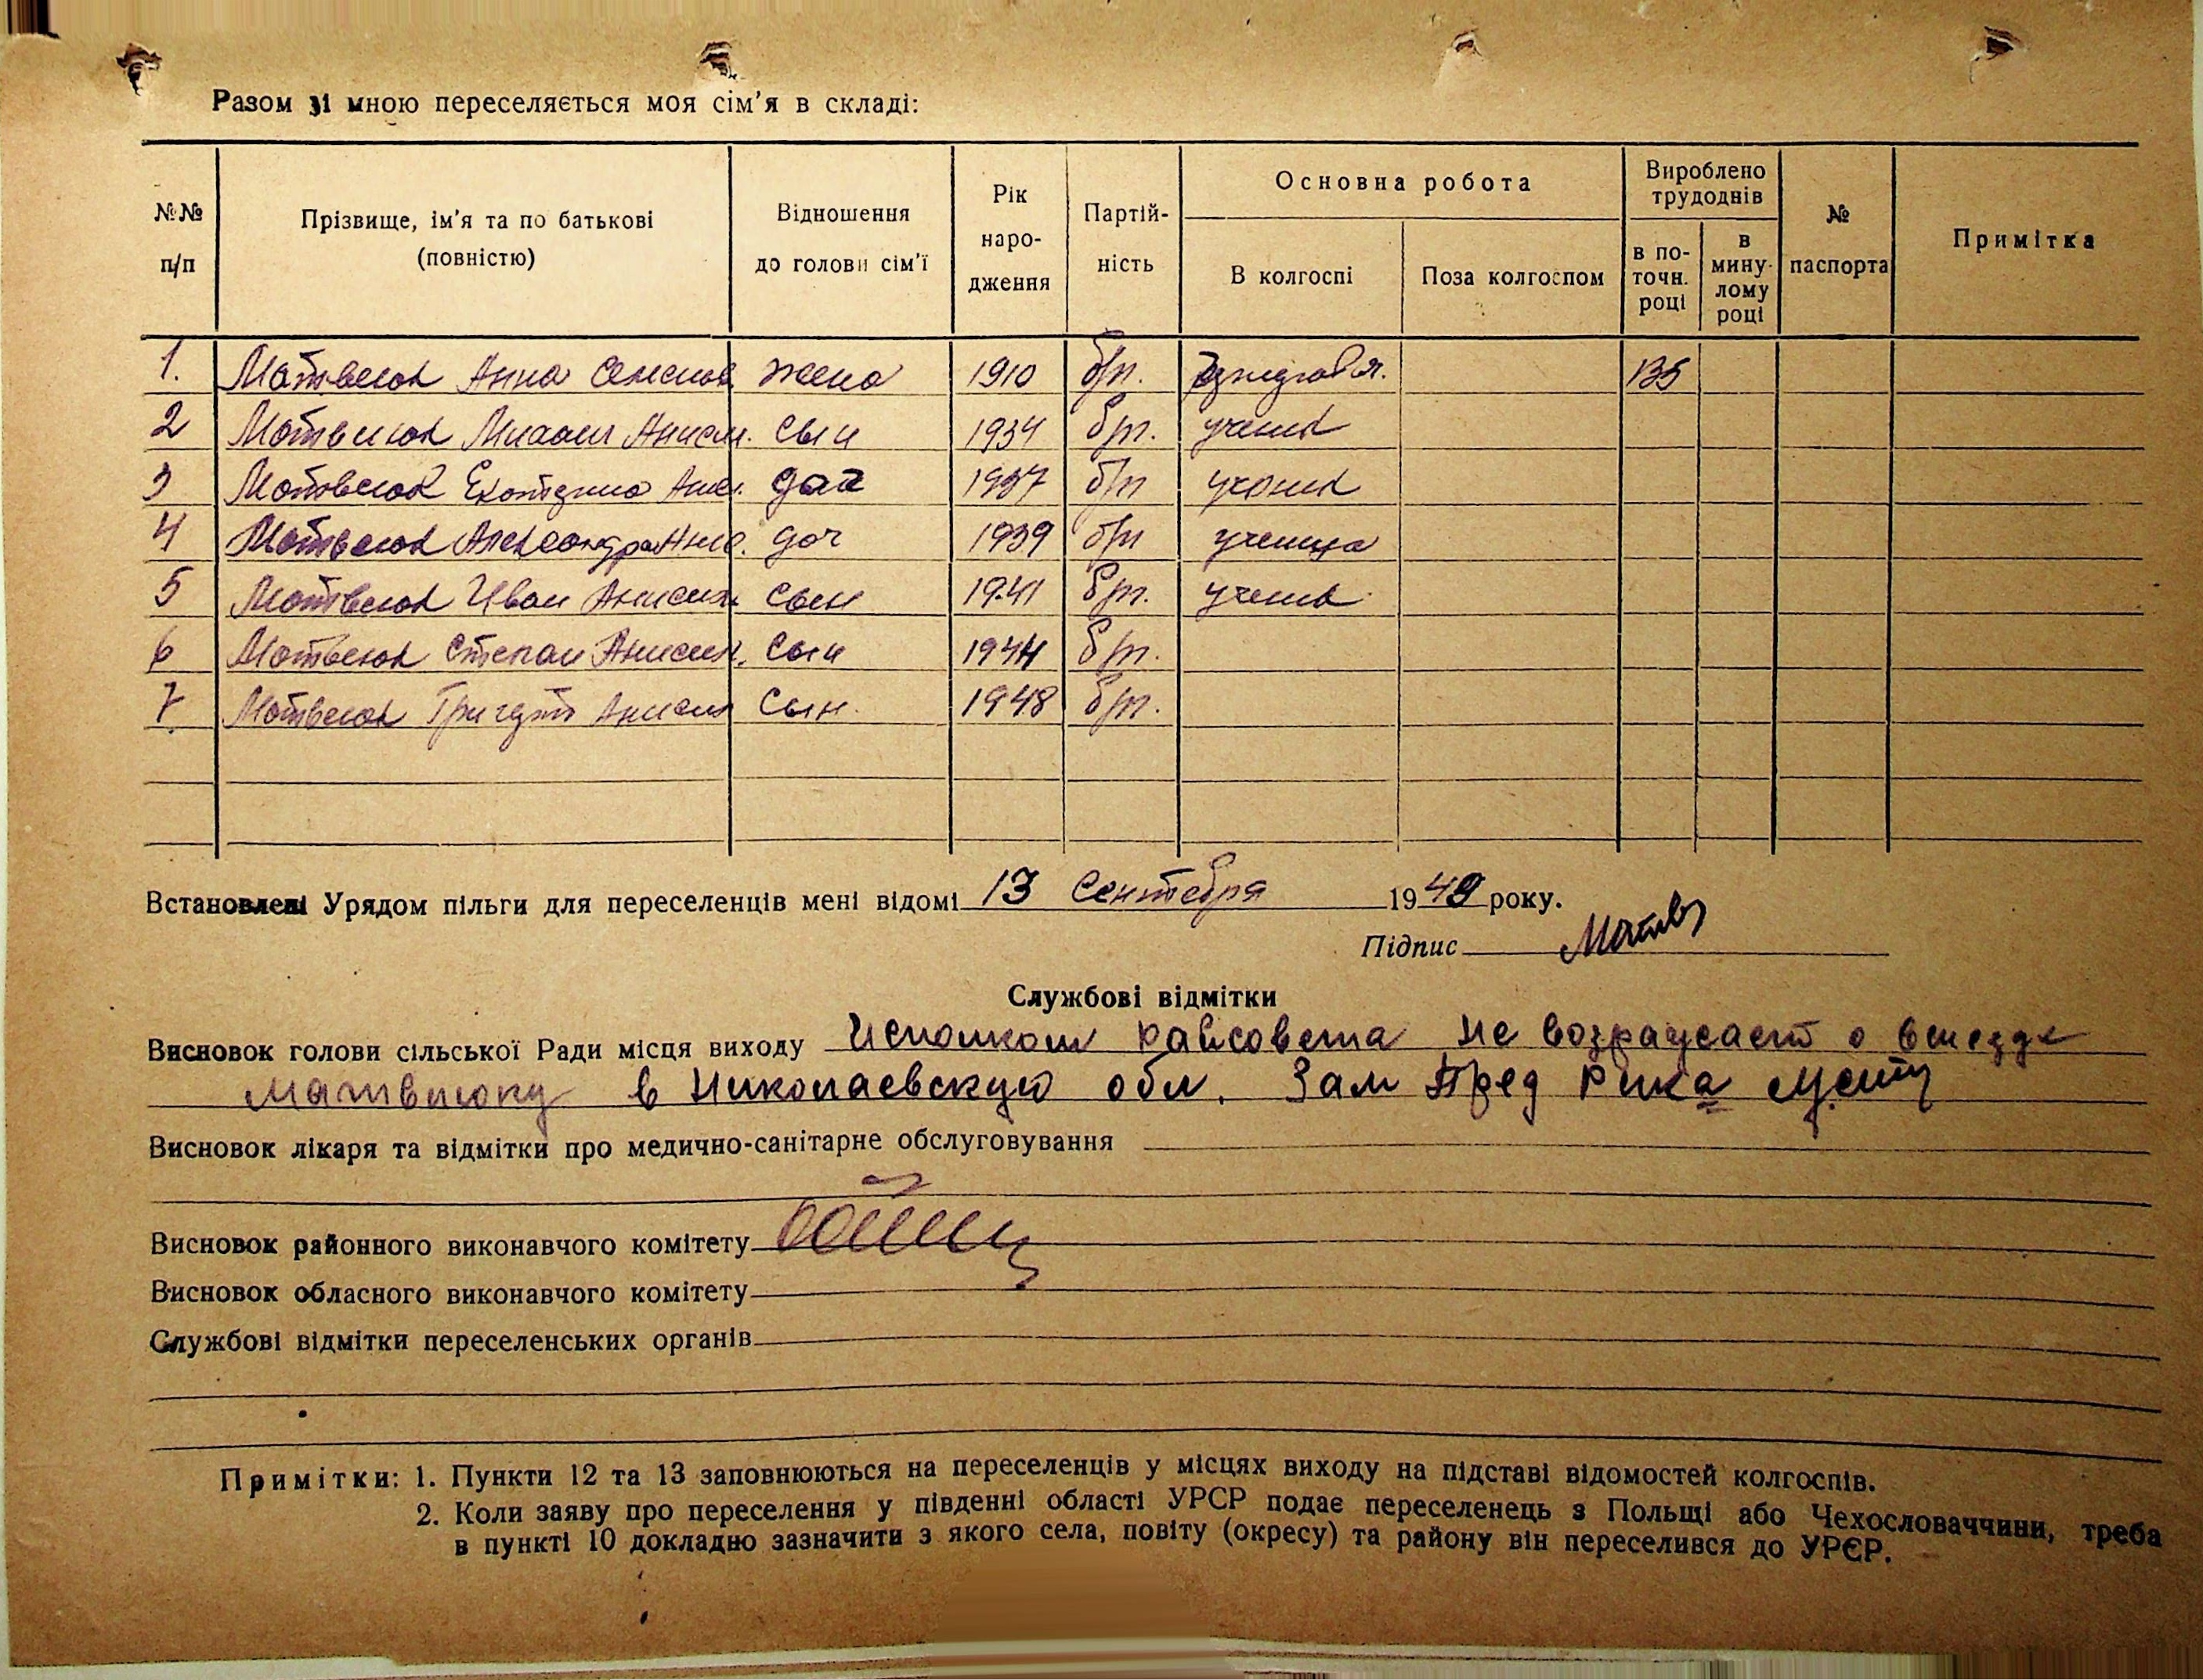 Разом зі мною переселяється моя сім'я в складі:
№№ п/п | Прізвище, ім'я та по батькові (повністю) | Відношення до голови сім'ї | Рік народження | Партійність | Основна робота | Вироблено трудоднів | № паспорта | Примітка
В колгоспі | Поза колгоспом | в поточн. році | в минулому році
1. Матвеюк Анна Семенов жена 1910 б/п. 135
2 Матвиюк Михаил Анисим. сын 1934 б/п. ученик
3 Матвеюк Екатерина Анис. доч 1937 б/п ученик
4 Матвеюк Александра Анис. доч 1939 б/п ученица
5 Матвеюк Иван Анисим сын 1941 б/п. ученик
6 Матвеюк Степан Анисим. сын 1944 б/п.
7 Матвеюк Григорий Анисим сын. 1948 б/п.
Встановлені Урядом пільги для переселенців мені відомі 13 Сентября 1949 року.
Підпис Матв
Службові відмітки
Висновок голови сільської Ради місця виходу Исполком райсовета не возражает о выезде
Матвиюку в Николаевскую обл. Зам Пред Рика
Висновок лікаря та відмітки про медично-санітарне обслуговування
Висновок районного виконавчого комітету
Висновок обласного виконавчого комітету
Службові відмітки переселенських органів
Примітки: 1. Пункти 12 та 13 заповнюються на переселенців у місцях виходу на підставі відомостей колгоспів.
2. Коли заяву про переселення у південні області УРСР подає переселенець з Польщі або Чехословаччини, треба
в пункті 10 докладно зазначити з якого села, повіту (окресу) та району він переселився до УРСР.